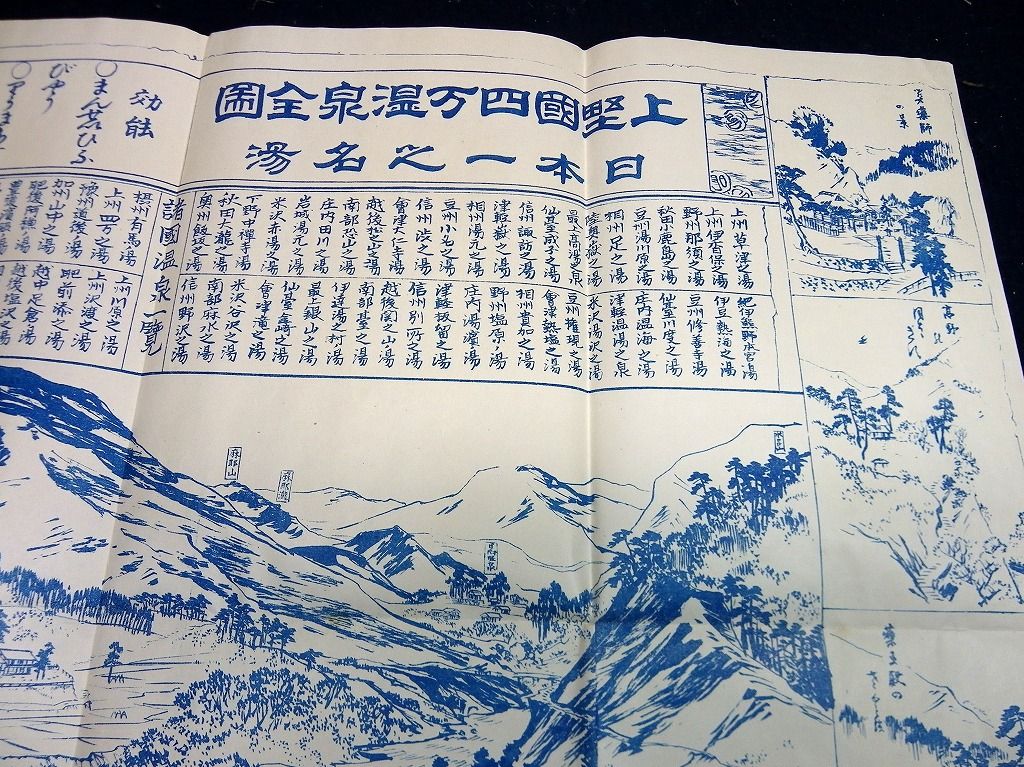 上野國四万温泉全圖
日本一之名湯
上州草津之湯
上州伊香保之湯
野州那須之湯
秋田小鹿島之湯
豆州湯河原之湯
相州足之湯
陸奥嶽之湯
最上高湯之泉
仙臺成子之湯
信州諏訪之湯
津軽嶽之湯
相州湯元之湯
豆州小名之湯
信州渋之湯
會津天仁寺湯
越後松之山之湯
南部恐山之湯
庄内田川之湯
岩城湯元之湯
米沢赤湯之湯
下野中禅寺湯
秋田大瀧之湯
奥州飯坂之湯
紀伊熊野本宮湯
伊豆熱海之湯
豆州修善寺湯
仙臺川度之湯
庄内温海之湯
津軽温湯之泉
米沢湯沢之湯
豆州権現之湯
會津熱塩之湯
相州貴加之湯
野州塩原之湯
庄内湯濱之湯
津軽板留之湯
信州別所之湯
越後関之山湯
南部臺之湯
伊達湯之村湯
最上銀山之湯
仙臺釜崎之湯
會津滝之湯
米沢谷沢之湯
南部麻水之湯
信州野沢之湯
諸國温泉一覧
摂州有馬湯
上州四万之湯
豫州道後之湯
加州山中之湯
肥後阿蘇湯
上州川原之湯
上州沢渡之湯
肥前
越中足倉之湯
越後塩沢之湯
効能
○まんせいひふ
びやう
の景